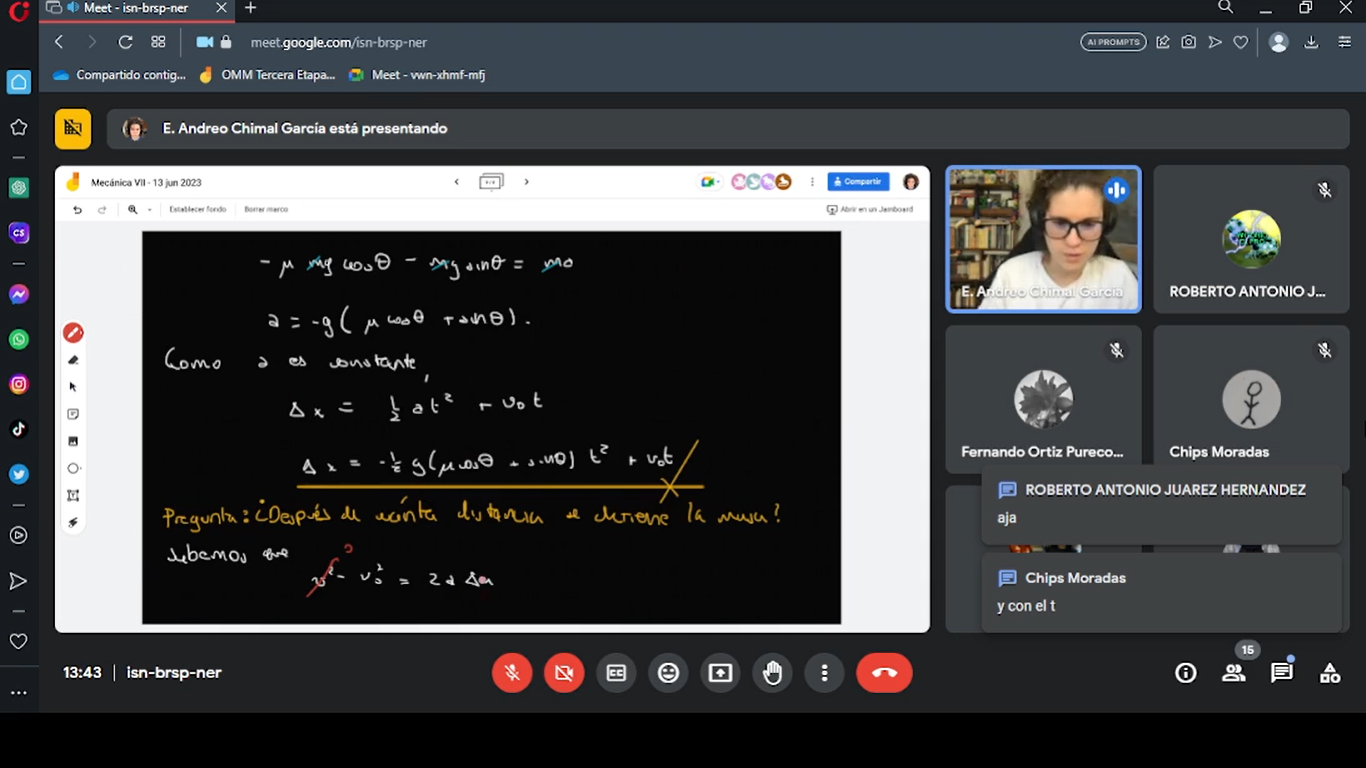 Meet - isn-brsp-ner
meet.google.com/isn-brsp-ner
AI PROMPTS
Compartido contig...
OMM Tercera Etapa...
Meet - vwn-xhmf-mfj
E. Andreo Chimal García está presentando
Mecánica VII - 13 jun 2023
Compartir
Establecer fondo
Borrar marco
Abrir en un Jamboard
- μ mg cosθ - mg sinθ = ma
a = -g( μ cosθ + sinθ).
Como a es constante,
Δx = ½ at² + v₀t
Δx = -½ g(μcosθ + sinθ) t² + v₀t
Pregunta: ¿Después de cuánta distancia se detiene la masa?
Sabemos que
v² - v₀² = 2a Δx
0
E. Andreo Chimal García
ROBERTO ANTONIO J...
Fernando Ortiz Pureco...
Chips Moradas
ROBERTO ANTONIO JUAREZ HERNANDEZ
aja
Chips Moradas
y con el t
13:43
isn-brsp-ner
15
CS